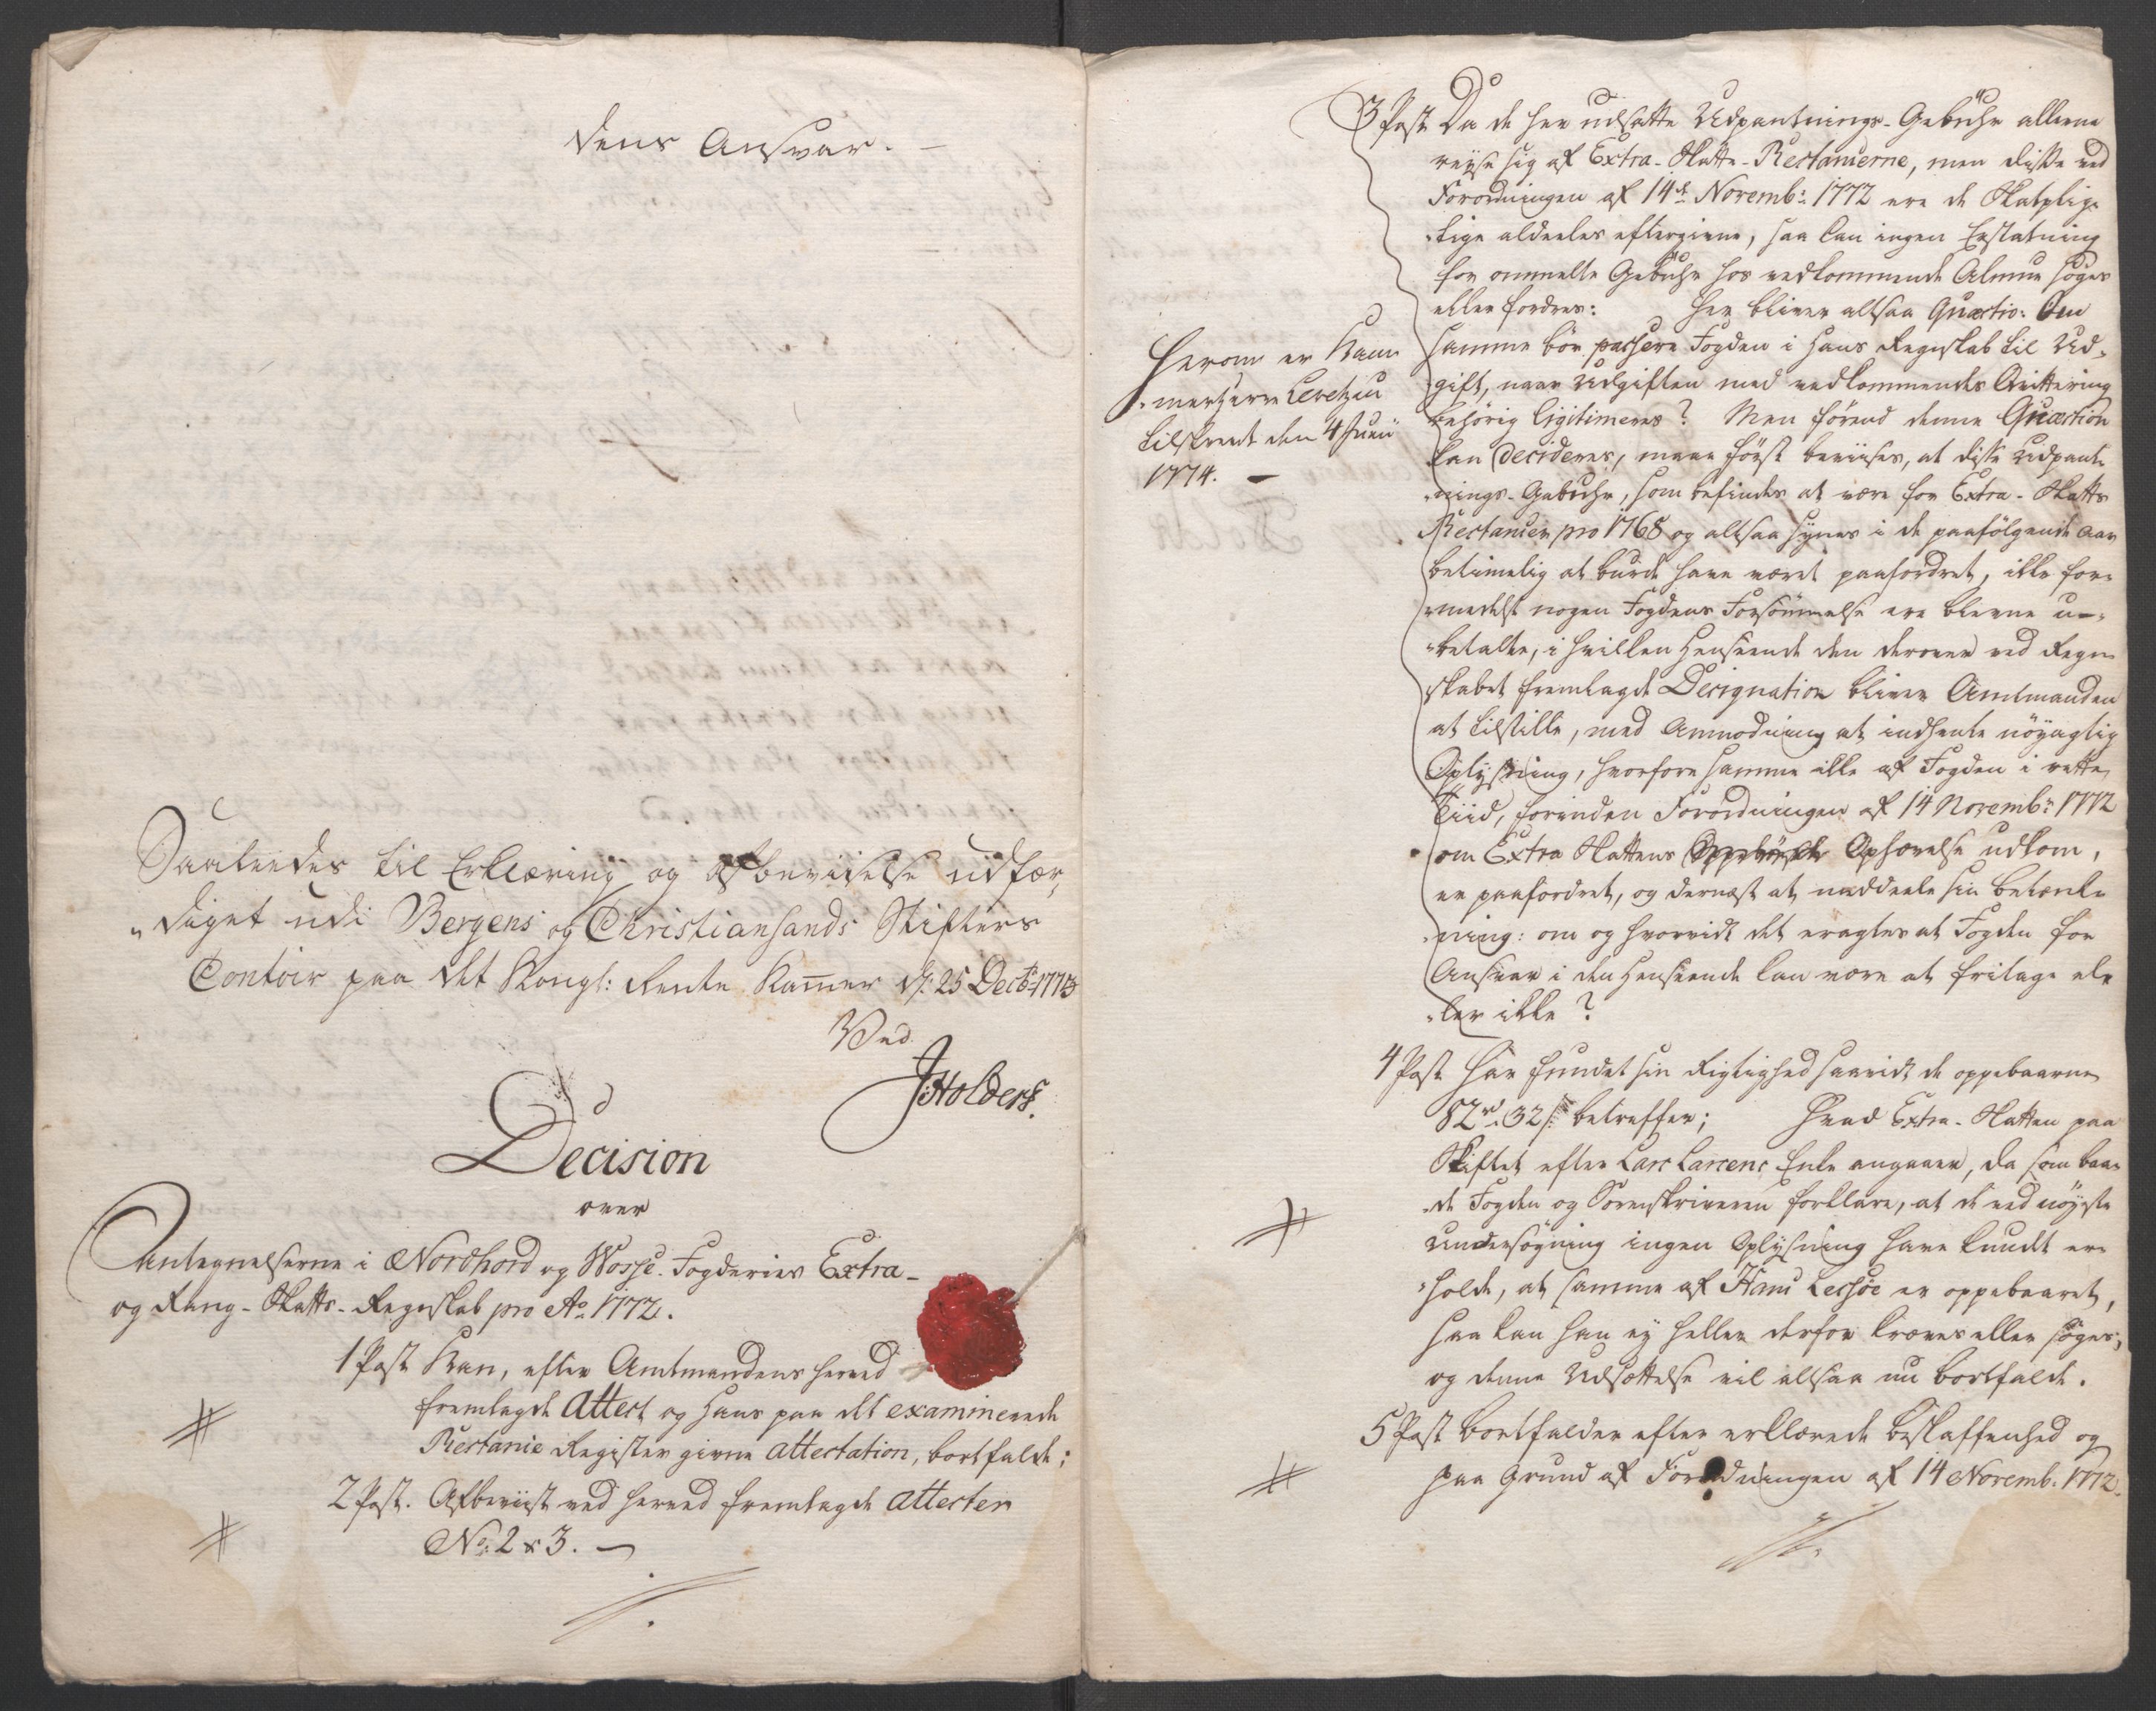 dens Ansvar. —
Saaleedes til Erklæring og Afbeviiselse udfær„
„diget udi Bergens og Christiansands Stifters
Contoir paa det Kongl: Rente Kammer d: 25 Decb: 1773
Ved
JHolders.
Decision
over
Antegnelserne i Nordhord og Wosse-Fogderies Extra-
og Rang-Skatts-Regnskab pro Ao 1772.
1 Post Kan, efter Amtmandens herved
fremlagde Attest og hans paa det examinerede
Restance Register givne attestation, bortfalde;
2 Post. Afbeviist ved herved fremlagde attester
No: 2 & 3. —
Herom er Kam„
„merherre Levetzau
tilskrevet den 4 Junii
1774. —
3 Post Da de her udsatte Udpantnings-Gebuhr alleene
reyse sig af Extra-Skatte-Restancerne, men disse ved
Forordningen af 14de Novemb: 1772 ere de Skatplig„
„tige aldeeles eftergivne, saa kan ingen Erstatning
for ommelte Gebuhr hos vedkommende Almue søges
eller fordres: Her bliver altsaa Quæstio: Om
samme bør passere Fogden i hans Regnskab til Ud„
gift, naar Udgiften med vedkommendes Qvittering
behørig legitimeres? Men førend denne Quæstion
kan decideres, maae først beviises, at disse Udpant„
„nings-Gebuhr, som befindes at være for Extra-Skatts
Restancer pro 1768 og altsaa synes i de paafølgende Aar
betimelig at burde have været paafordret, ikke for„
„medelst nogen Fogdens Forsømmelse ere blevne u„
„betalte, i hvilken Henseende den derover ved Regn„
skabet fremlagde Designation bliver Amtmanden
at tilstille, med Anmodning at indhente nøyagtig
Oplysning, hvorfore samme ikke af Fogden i rette
Tiid, forinden Forordningen af 14 Novemb: 1772
om Extra Skattens Ophævelse udkom,
er paafordret, og dernæst at meddeele sin Betænk„
„ning: om og hvorvidt det eragtes at Fogden for
Ansvar i den Henseende kan være at fritage el„
„ler ikke?
4 Post Har fundet sin Rigtighed saavidt de oppebaarne
82 rd 32 s betreffer; Hvad Extra-Skatten paa
Skiftet efter Lars Larsens Enke angaaer, da som baa„
„de Fogden og Sorenskriveren forklare, at de ved nøyeste
Undersøgning ingen Oplysning have kundt er„
„holde, at samme af Hans Lessøe er oppebaaret,
saa kan han ey heller derfor kræves eller søges,
og denne Udsættelse vil altsaa nu bortfalde.
5 Post Bortfalder efter erklærede Beskaffenhed og
paa Grund af Forordningen af 14 Novemb. 1772.